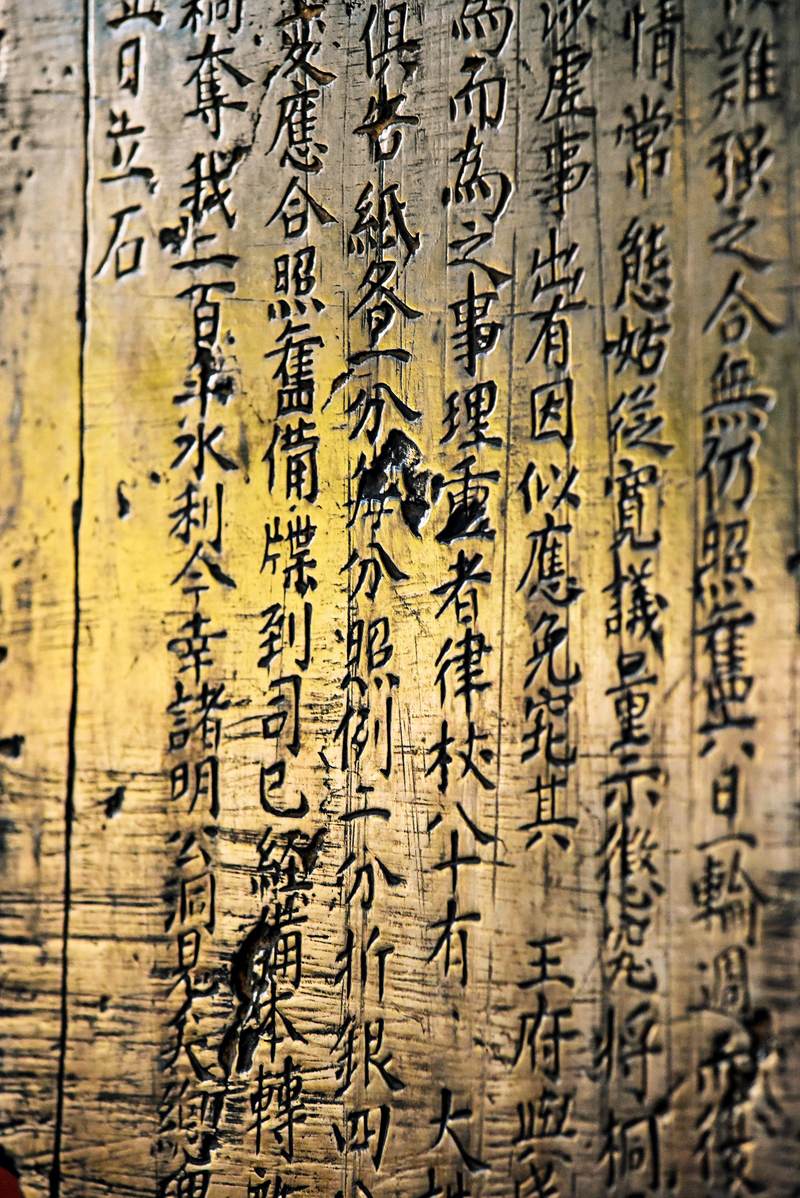 難强之合無仍照舊六日一輪週而復
情常態姑從寬議量示懲究將桐
涉虛事出有因似應免究其 王府與
為而為之事理重者律杖八十有 大
俱告紙各一分每分照例二分折銀四
應合照舊備牒到司已經備本轉
桐奪我上百年水利今幸諸明公洞見
日立石